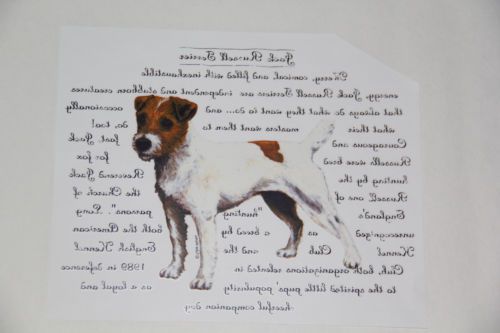 Jack Russell Terrier
Merry, comical and filled with inexhaustible
energy, Jack Russell Terriers are independent and stubborn creatures
that always do what they want to do... and occasionally
what their masters want them to do, too!
Courageous and fast, Jack
Russells were bred for fox
hunting by the Reverend Jack
Russell, one of the Church of
England's "hunting parsons". Long
unrecognized as a breed by both the American
Kennel Club and the English Kennel
Club, both organizations relented in 1989 in deference
to the spirited little pups' popularity as a loyal and
cheerful companion dog